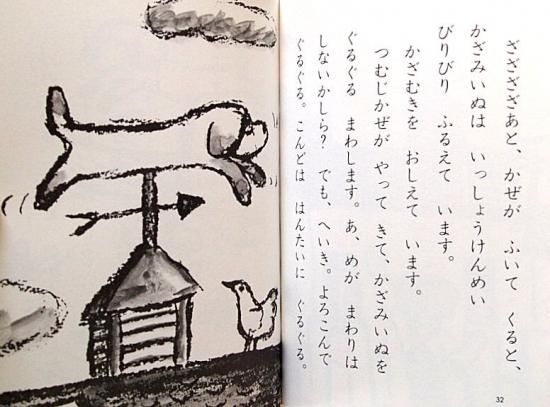 ざざざざあと、かぜが ふいて くると、
かざみいぬは いっしょうけんめい
びりびり ふるえて います。
かざむきを おしえて います。
つむじかぜが やって きて、かざみいぬを
ぐるぐる まわします。あ、めが まわりは
しないかしら? でも、へいき。よろこんで
ぐるぐる。こんどは はんたいに ぐるぐる。
32